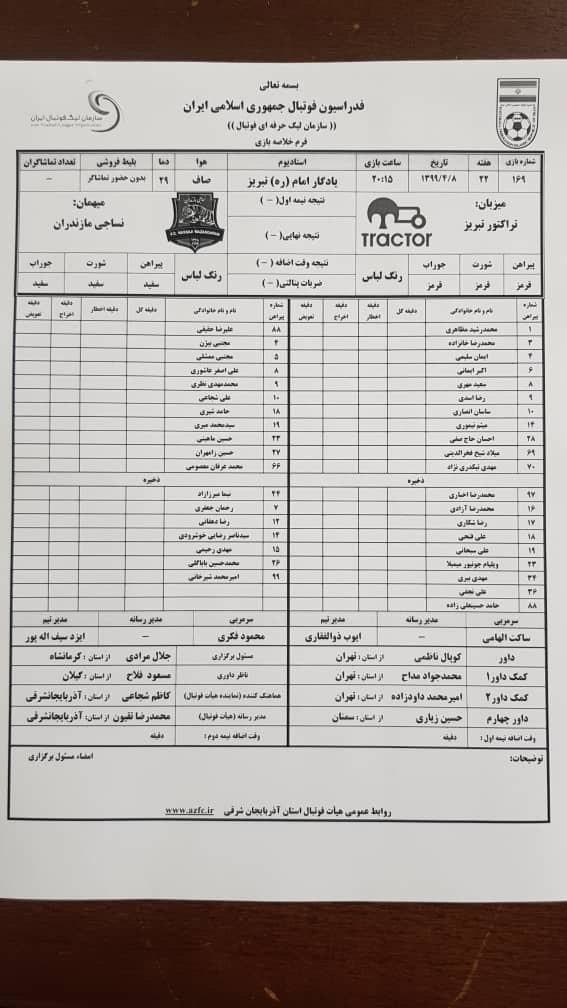 بسمه تعالی
فدراسیون فوتبال جمهوری اسلامی ایران
(( سازمان لیگ حرفه ای فوتبال ))
فرم خلاصه بازی
سازمان لیگ فوتبال ایران
شماره بازی هفته تاریخ ساعت بازی استادیوم هوا دما بلیط فروشی تعداد تماشاگران
۱۶۹ ۲۲ ۱۳۹۹/۴/۸ ۲۰:۱۵ یادگار امام (ره) تبریز صاف ۲۹ بدون حضور تماشاگر –
میزبان: تراکتور تبریز
TRACTOR
نتیجه نیمه اول( – )
نتیجه نهایی( – )
میهمان: نساجی مازندران
پیراهن شورت جوراب رنگ لباس نتیجه وقت اضافه ( – ) رنگ لباس پیراهن شورت جوراب
قرمز قرمز قرمز ضربات پنالتی( – ) سفید سفید سفید
شماره پیراهن نام و نام خانوادگی دقیقه گل دقیقه اخطار دقیقه اخراج دقیقه تعویض شماره پیراهن نام و نام خانوادگی دقیقه گل دقیقه اخطار دقیقه اخراج دقیقه تعویض
۱ محمدرشید مظاهری ۸۸ علیرضا حقیقی
۳ محمدرضا خانزاده ۴ مجتبی بیژن
۴ ایمان سلیمی ۵ مجتبی ممشلی
۶ اکبر ایمانی ۸ علی اصغر عاشوری
۸ سعید مهری ۹ محمدمهدی نظری
۹ رضا اسدی ۱۰ علی شجاعی
۱۰ ساسان انصاری ۱۸ حامد شیری
۱۴ میثم تیموری ۱۹ سیدمحمد میری
۲۸ احسان حاج صفی ۲۳ حسین ماهینی
۶۹ میلاد شیخ فخرالدینی ۲۷ حسین زامهران
۷۰ مهدی تیکدری نژاد ۶۶ محمد عرفان معصومی
ذخیره ذخیره
۹۷ محمدرضا اخباری ۴۴ نیما میرزازاد
۱۶ محمدرضا آزادی ۷ رحمان جعفری
۱۷ رضا شکاری ۱۲ رضا دهقانی
۱۸ علی فتحی ۱۴ سیدناصر رضایی خوشرودی
۱۹ علی سبحانی ۱۵ مهدی رحیمی
۲۳ ویلیام جونیور میمبلا ۲۶ محمدحسین باباگلی
۳۴ مهدی ببری ۹۹ امیرمحمد شیرخانی
۳۶ علی نجفی
۸۸ حامد حسینعلی زاده
سرمربی مدیر رسانه مدیر تیم سرمربی مدیر رسانه مدیر تیم
ساکت الهامی – ایوب ذوالفقاری محمود فکری – ایزد سیف اله پور
داور کوپال ناظمی از استان: تهران مسئول برگزاری جلال مرادی از استان: کرمانشاه
کمک داور۱ محمدجواد مداح از استان: تهران ناظر داوری مسعود فلاح از استان: گیلان
کمک داور۲ امیرمحمد داودزاده از استان: تهران هماهنگ کننده (نماینده هیأت فوتبال) کاظم شجاعی از استان: آذربایجانشرقی
داور چهارم حسین زیاری از استان: سمنان مدیر رسانه (هیأت فوتبال) محمدرضا نقیون از استان: آذربایجانشرقی
وقت اضافه نیمه اول : دقیقه وقت اضافه نیمه دوم : دقیقه
توضیحات: امضاء مسئول برگزاری
روابط عمومی هیأت فوتبال استان آذربایجان شرقی www.azfc.ir